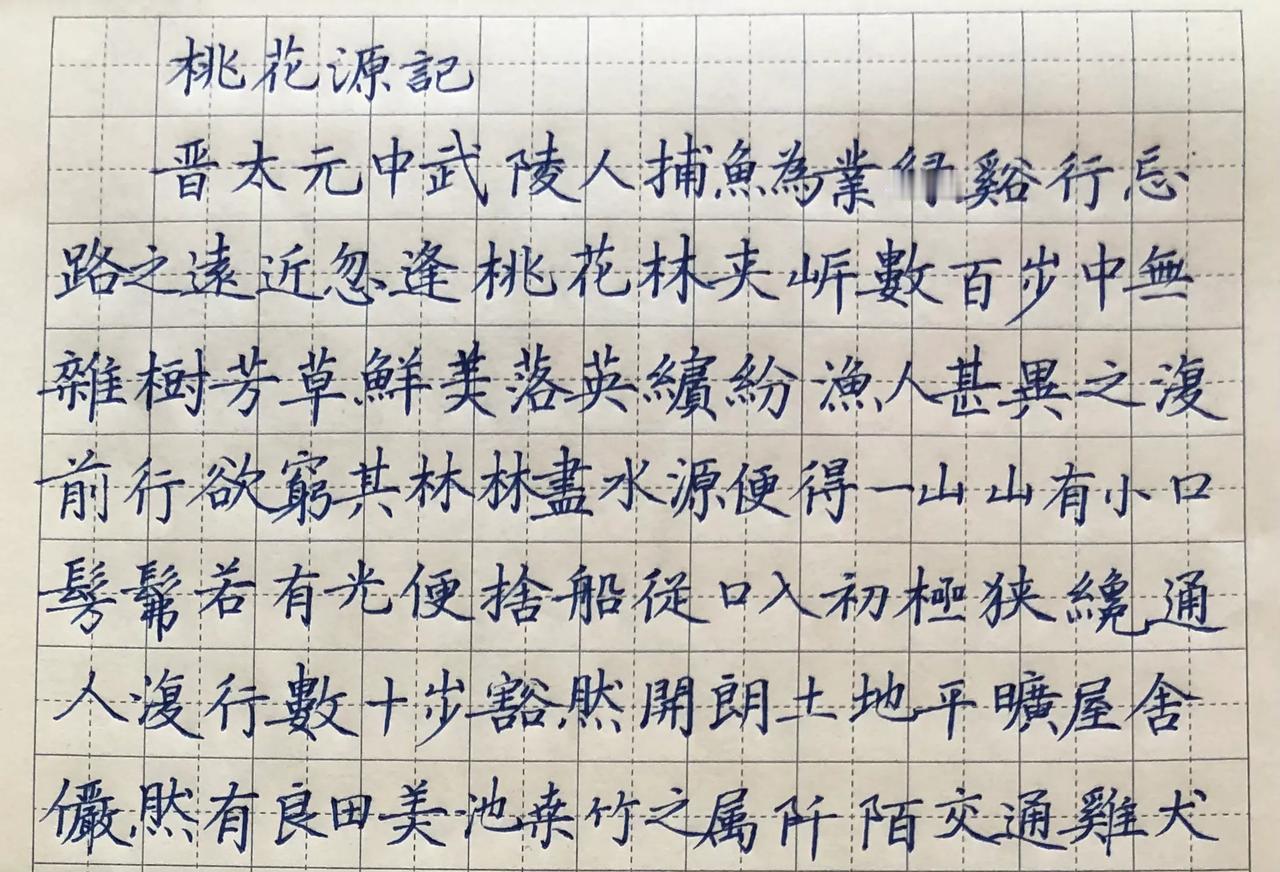 桃花源記
晋太元中武陵人捕魚為業谿行忘
路之遠近忽逢桃花林夾岍數百步中無
雜樹芳草鮮美落英繽紛漁人甚異之澓
前行欲窮其林林盡水源便得一山山有小口
髣髴若有光便捨船從口入初極狭纔通
人澓行數十步豁然開朗土地平曠屋舍
儼然有良田美池桒竹之属阡陌交通雞犬